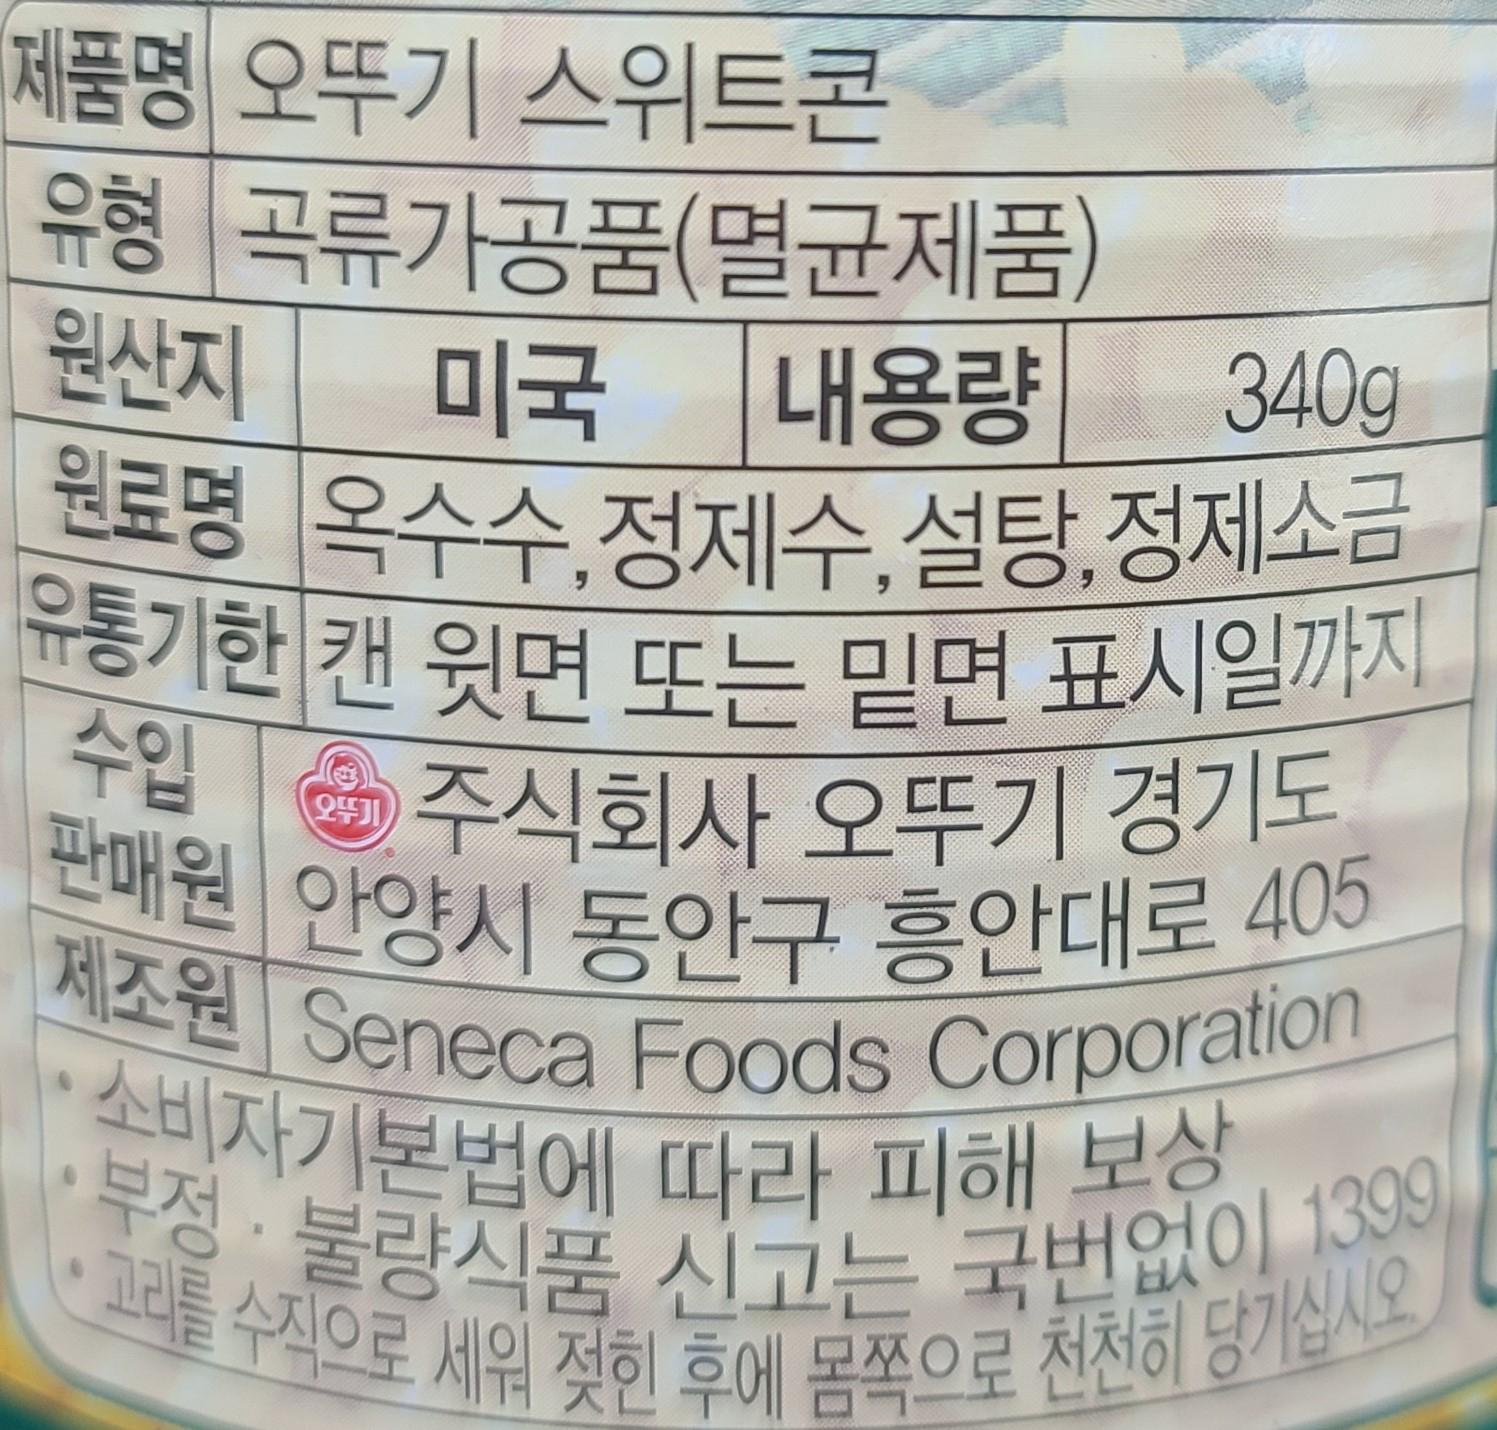 제품명 오뚜기 스위트콘
유형 곡류가공품(멸균제품)
원산지 미국 내용량 340g
원료명 옥수수, 정제수, 설탕, 정제소금
유통기한 캔 윗면 또는 밑면 표시일까지
수입
판매원
오뚜기 주식회사 오뚜기 경기도
안양시 동안구 흥안대로 405
제조원 Seneca Foods Corporation
· 소비자기본법에 따라 피해 보상
· 부정 · 불량식품 신고는 국번없이 1399
· 고리를 수직으로 세워 젖힌 후에 몸쪽으로 천천히 당기십시오.